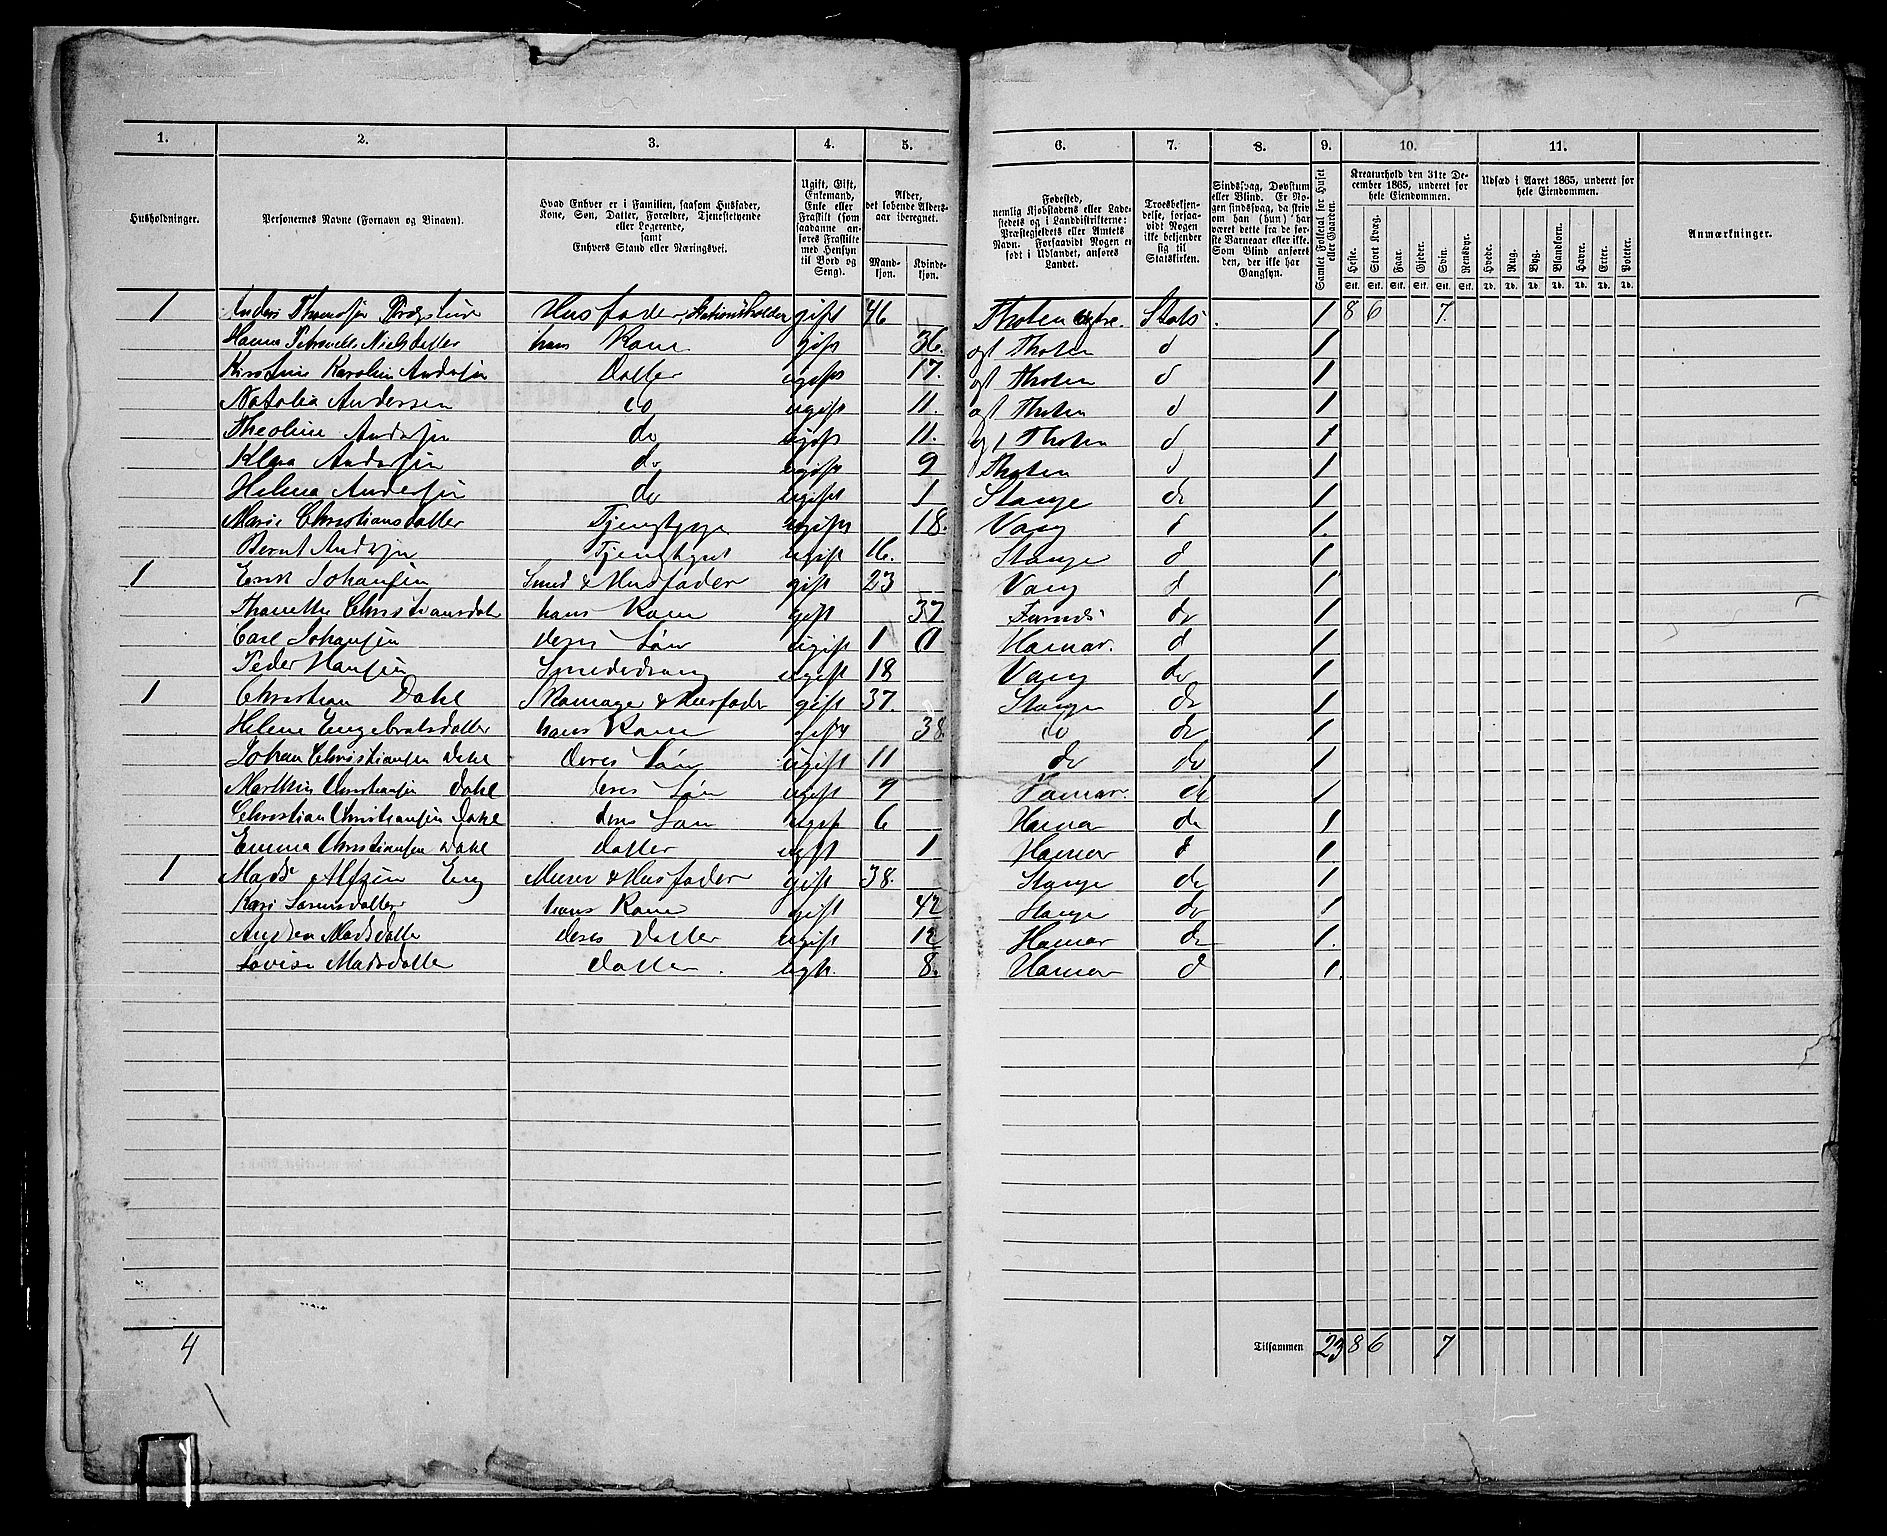 1. 2. 3. 4. 5. 6. 7. 8. 9. 10. 11.
Husholdninger.
Personernes Navne (Fornavn og Binavn).
Hvad Enhver er i Familien, saasom Husfader, Kone, Søn, Datter, Forældre, Tjenestetyende eller Logerende, samt Enhvers Stand eller Næringsvei.
Ugift, Gift, Enkemand, Enke eller Fraskilt (som saadanne anføres Fraskilte med Hensyn til Bord og Seng).
Alder, det løbende Aldersaar iberegnet.
Mandkjøn. Kvindekjøn.
Fødested, nemlig Kjøbstadens eller Ladestedets og i Landdistrikterne: Præstegjeldets eller Amtets Navn. Forsaavidt Nogen er født i Udlandet, anføres Landet.
Troesbekjendelse, forsaavidt Nogen ikke bekjender sig til Statskirken.
Sindssvag, Døvstum eller Blind. Er Nogen sindssvag, da skrives om han (hun) har været dette fra de første Barneaar eller ikke. Som Blind anføres den, der ikke har Gangsyn.
Samlet Folketal for Huset eller Gaarden.
Kreaturhold den 31te December 1865, underet for hele Eiendommen.
Heste. Stort Kvæg. Faar. Gjeder. Svin. Rensdyr.
Stk. Stk. Stk. Stk. Stk. Stk.
Udsæd i Aaret 1865, underet for hele Eiendommen.
Hvede. Rug. Byg. Blandkorn. Havre. Erter. Poteter.
Td. Td. Td. Td. Td. Td. Td.
Anmærkninger.
1 Anders Husfader, Stationsholder gift 46 Thoten Stats. 1 8 6 7.
Hanna Nielsdatter hans Kone gift 36. Thoten d 1
Karoline Andersen Datter ugift 17. Thoten d 1
Natalia Andersen do ugift 11. Thoten d 1
Theoline Andersen do ugift 11. Thoten d 1
Klara Andersen do ugift 9 Thoten d 1
Helena Andersen do ugift 1 Stange do 1
Marie Christiansdatter ugift 18. Vang d 1.
Bernt Andersen ugift 16. Stange d 1
1 Erik Johansen Smed & Husfader gift 23 Vang d 1
Christiansdatter hans Kone gift 37 do 1
Carl Johansen deres Søn ugift 1 Hamar. d 1
Peder Hansen Smededreng ugift 18 Vang do 1
1 Christian Dahl Skomager & Husfader gift 37. Stange do 1
Helene Engebretsdatter hans Kone gift 38 do do 1
Johan Christiansen Dahl deres Søn ugift 11 do do 1
Christiansen Dahl deres Søn ugift 9 Hamar. do 1
Christian Christiansen Dahl deres Søn ugift 6 Hamar do 1
Emma Christiansen Dahl datter ugift 1 Hamar d 1.
1 Mads Eng Murer & Husfader gift 38. Stange do 1
Kari hans Kone gift 42 Stange do 1
Madsdatter deres datter ugift 12 Hamar do 1.
Lovise Madsdatter datter. ugift. 8. Hamar d 1.
4 Tilsammen 23 8 6 7